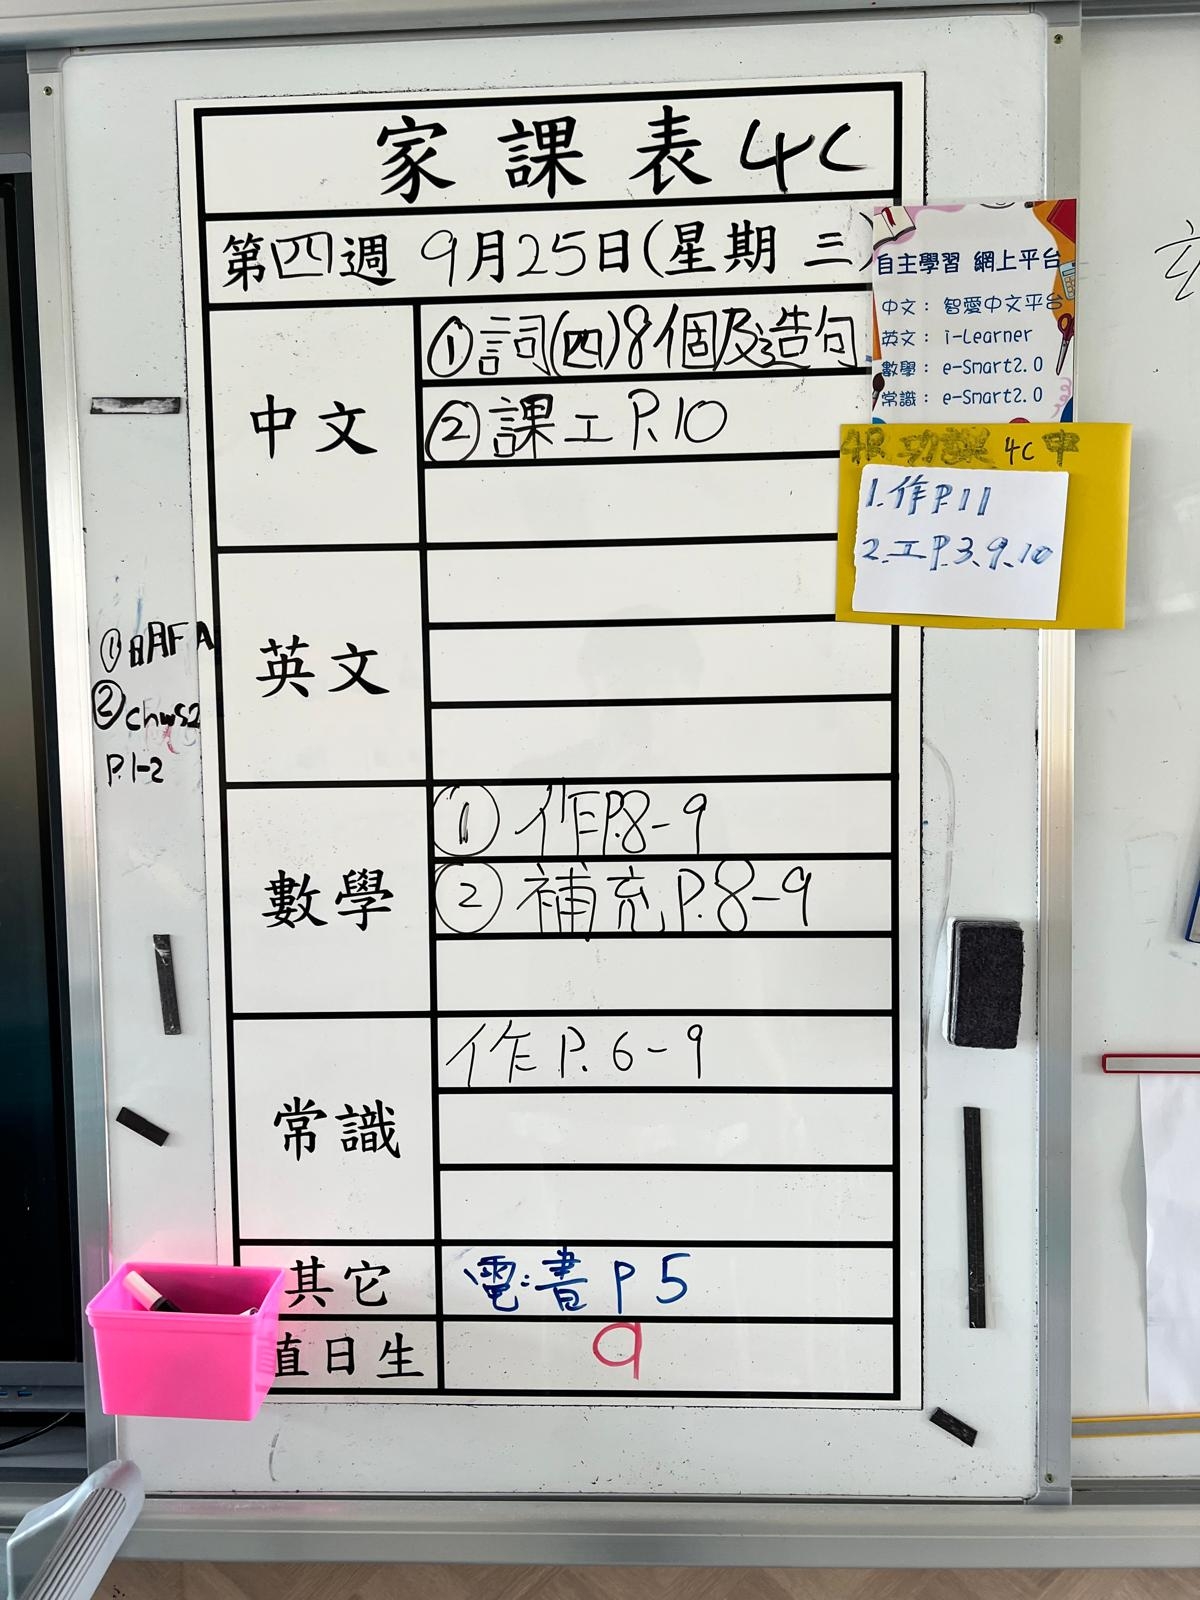 家課表 4C
第四週 9月25日(星期 三)
中文
①詞(四)8個及造句
②課工 P.10
英文
數學
① 作P.8-9
② 補充 P.8-9
常識
作 P. 6-9
其它
電:書 P 5
直日生
9
自主學習 網上平台
中文: 智愛中文平台
英文: i-Learner
數學: e-Smart2.0
常識: e-Smart2.0
功課 4C 中
1.作P.11
2.工P.3、9、10
① 明F A
② chws2
P.1-2